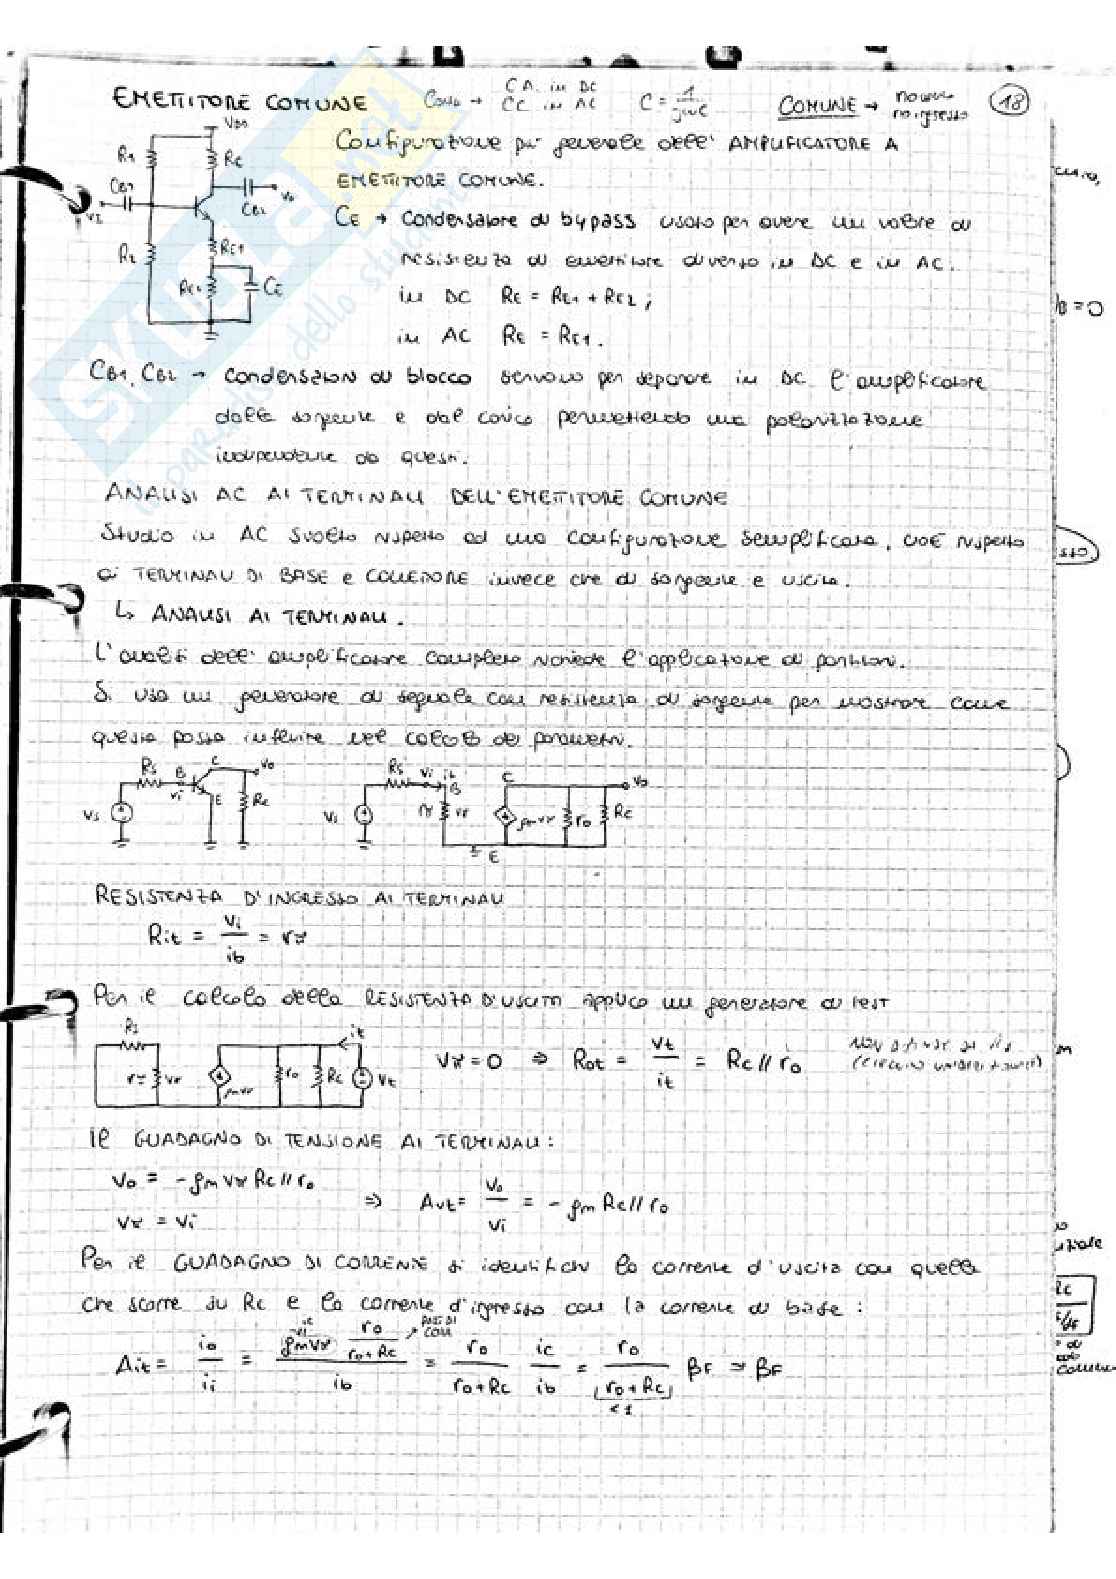 EMETTITORE COMUNE Cond → C.A. in DC
C.C. in AC C = 1/jwc COMUNE → no uscita no ingresso 18
Configurazione più generale dell' AMPLIFICATORE A
EMETTITORE COMUNE.
VDD
R1 RC
CB1 CB2 Vo
VI
R2 RE1
RE2 CE
CE → Condensatore di bypass usato per avere un valore di
resistenza di emettitore diverso in DC e in AC.
in DC RE = RE1 + RE2 ;
in AC RE = RE1 .
CB1, CB2 → Condensatori di blocco servono per separare in DC l'amplificatore
dalla sorgente e dal carico permettendo una polarizzazione
indipendente da questi.
ANALISI AC AI TERMINALI DELL'EMETTITORE COMUNE
Studio in AC svolto rispetto ad una configurazione semplificata, cioè rispetto
ai TERMINALI DI BASE e COLLETTORE invece che di sorgente e uscita.
↳ ANALISI AI TERMINALI.
L'analisi dell' amplificatore completo richiede l'applicazione di partitori.
Si usa un generatore di segnale con resistenza di sorgente per mostrare come
questa possa influire nel calcolo dei parametri.
RS B C Vo Vi E RC VS
RS Vi ib B C Vo VS rπ vπ gmvπ ro RC E
RESISTENZA D'INGRESSO AI TERMINALI
Rit = vi/ib = rπ
Per il calcolo della RESISTENZA D'USCITA applico un generatore di test
RS rπ vπ gmvπ ro RC it vt
Vπ = 0 ⇒ Rot = vt/it = RC // ro
Il GUADAGNO DI TENSIONE AI TERMINALI:
Vo = - gm Vπ RC // ro
Vπ = Vi
⇒ Avt = Vo/Vi = - gm RC // ro
Per il GUADAGNO DI CORRENTE si identifichi la corrente d'uscita con quella
che scorre su RC e la corrente d'ingresso con la corrente di base :
Ait = io/ii = gmVπ ro/(ro+RC) / ib = ro/(ro+RC) ic/ib = ro/(ro+RC) βF ≃ βF
< 1